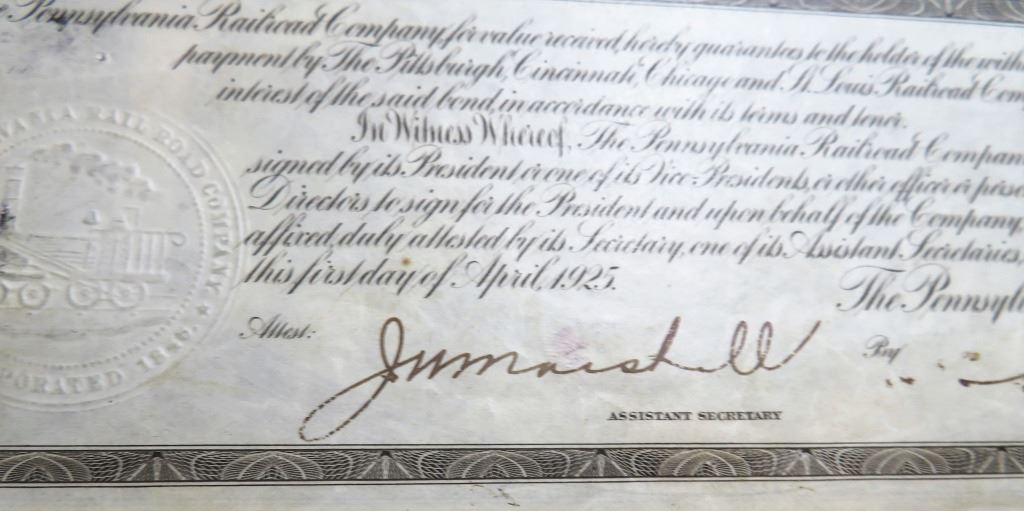 Pennsylvania Railroad Company, for value received, hereby guarantees to the holder of the with
payment by The Pittsburgh, Cincinnati, Chicago and St. Louis Railroad Com
interest of the said bond, in accordance with its terms and tenor.
In Witness Whereof, The Pennsylvania Railroad Compan
signed by its President or one of its Vice-Presidents, or other officer or perso
Directors to sign for the President and upon behalf of the Company,
affixed, duly attested by its Secretary, one of its Assistant Secretaries,
this first day of April, 1925.
The Pennsyl
Attest:
By
JWMarshall
ASSISTANT SECRETARY
VANIA RAIL ROAD COMPANY ★
ORPORATED 1846.